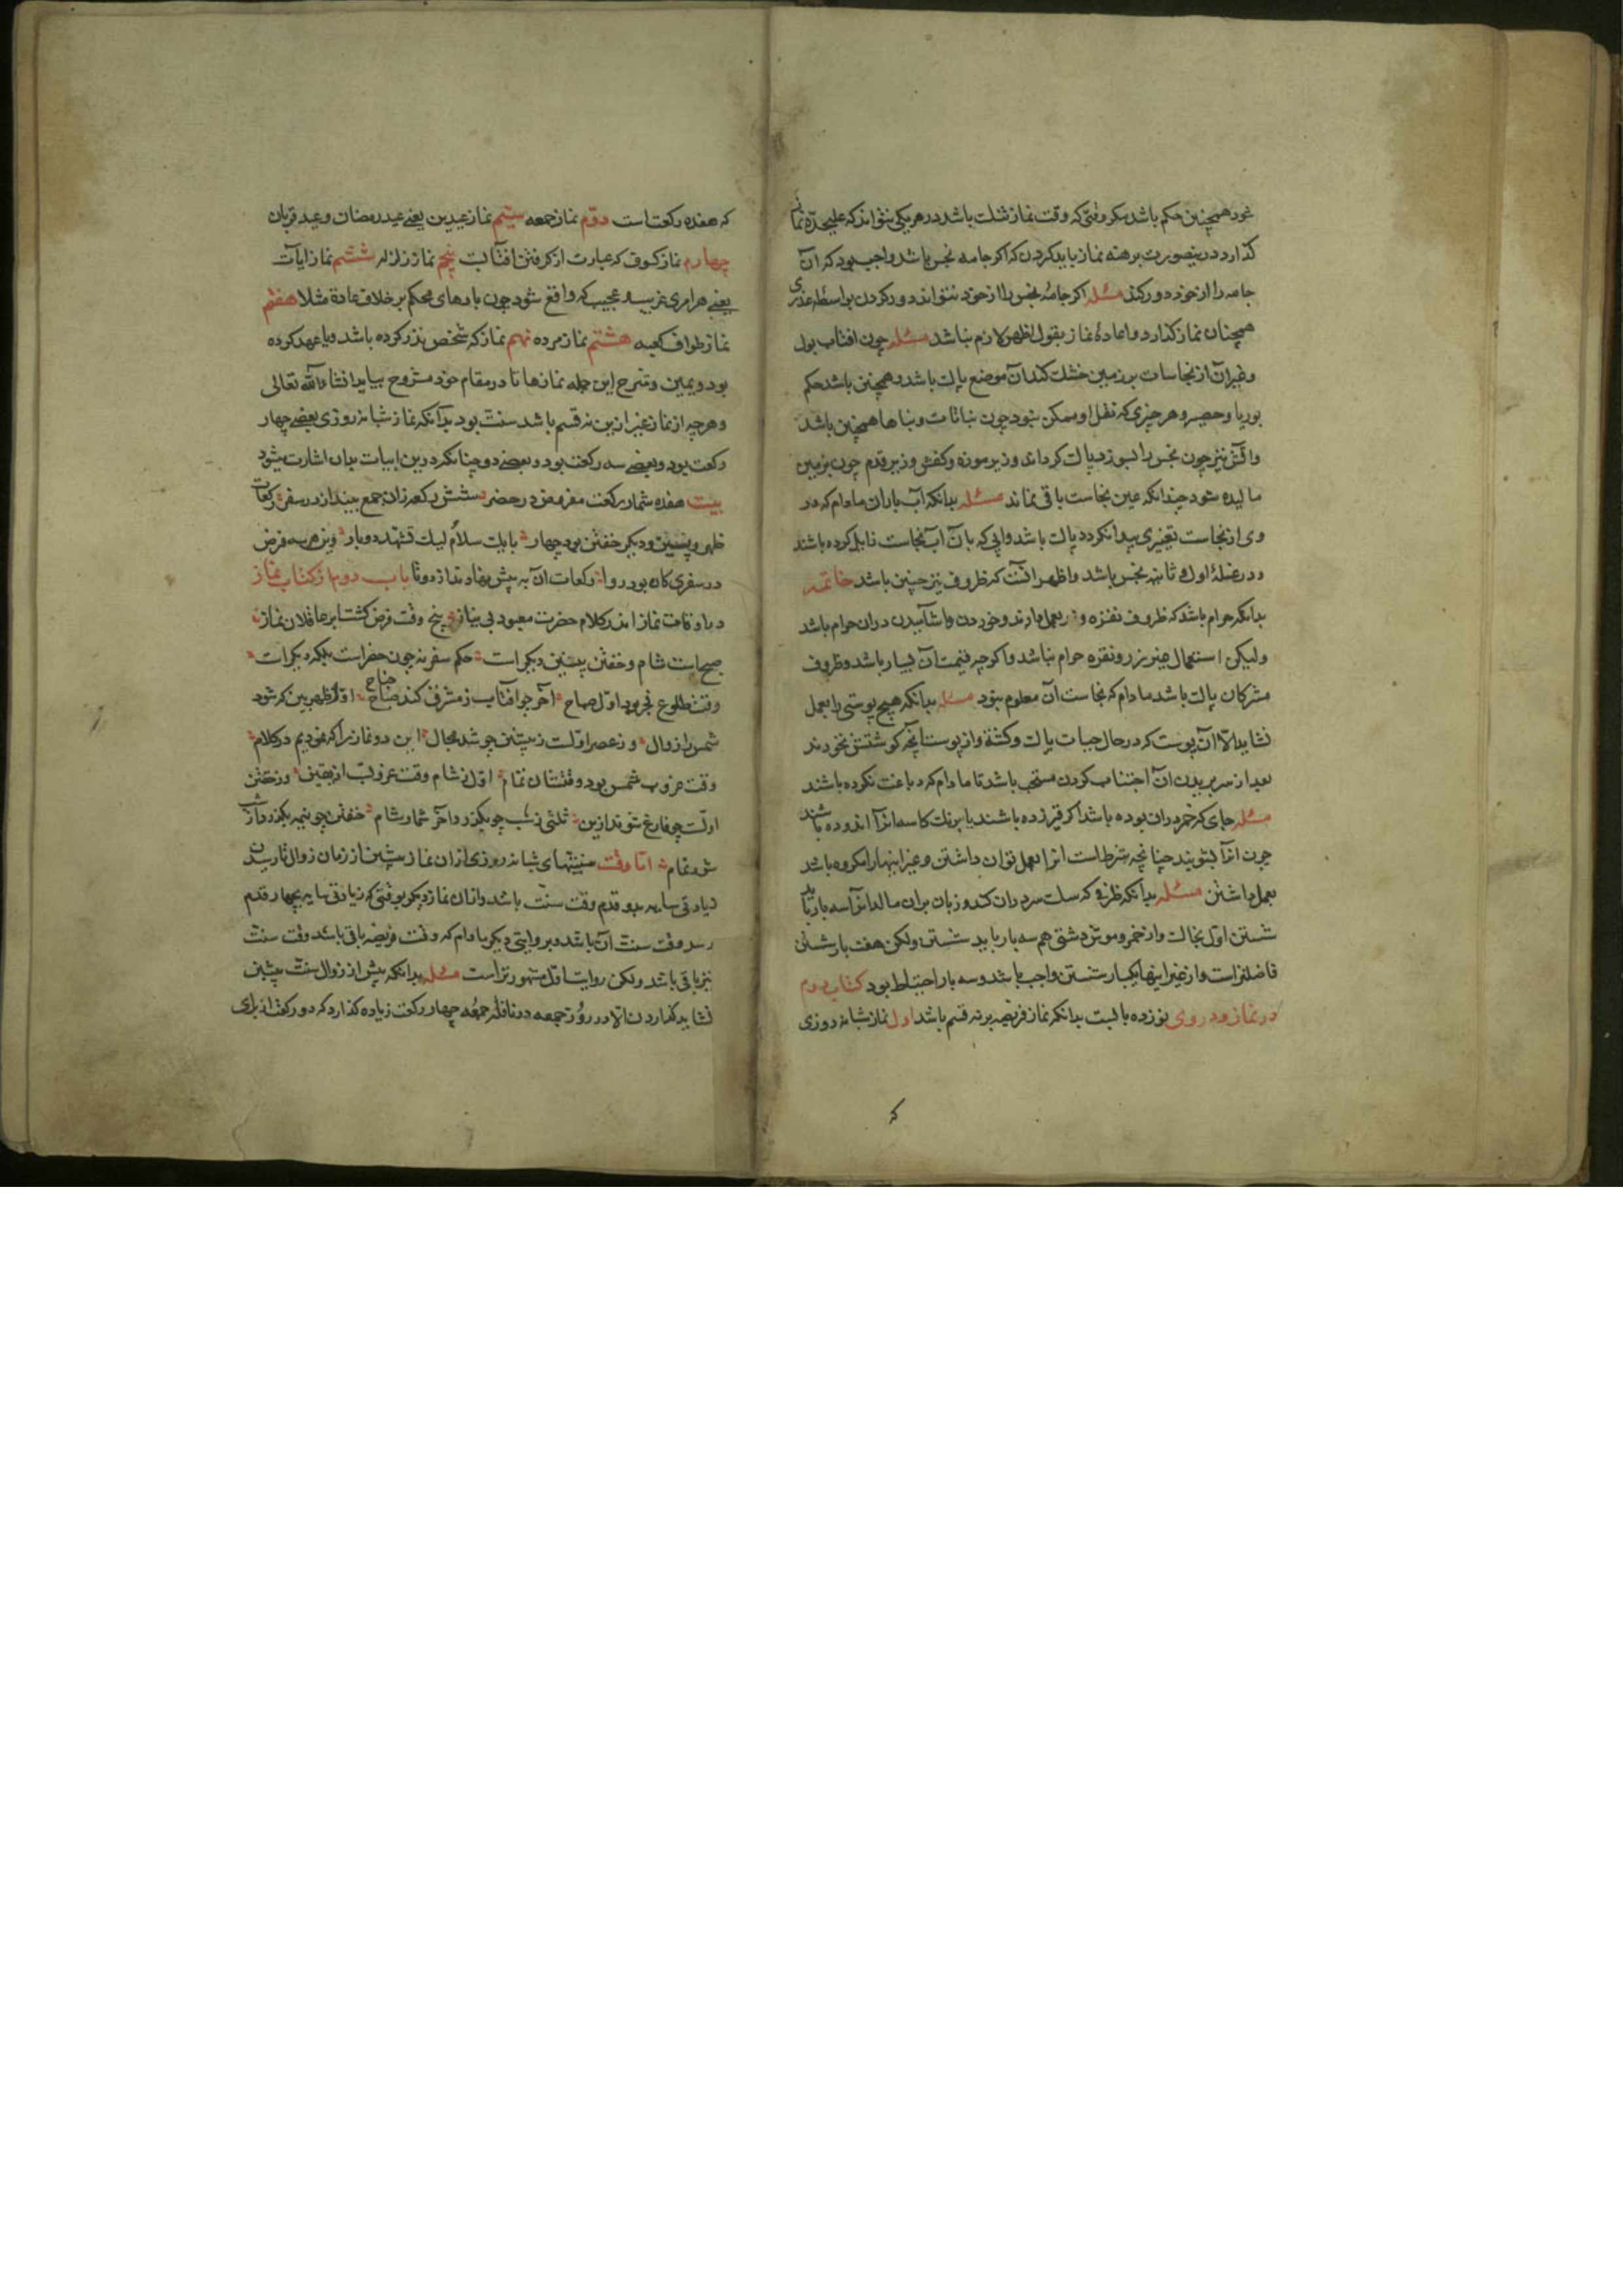 غرد همچنین حکم باشد مکر وقتی که وقت نماز تنک باشد در هر یکی نتواند که علیحدّه نماز
کذارد درینصورت برهنه نماز باید کردن که اکر جامه نجس باشد واجب بود که آن
جامه را از خود دور کند مسئله اکر جامهٔ نجس را از خود نتواند دور کردن بواسطه عذری
همچنان نماز کذارد و اعادهٔ نماز بقول اظهر لازم نباشد مسئله چون افتاب بول
و غیر آن از نجاسات بر زمین خشک کند آن موضع پاک باشد و همچنین باشد حکم
بوریا و حصیر و هر چیزی که نقل او ممکن نبود چون نباتات و بناها همچنین باشد
و اتش نیز چون نجس را بسوزد پاک کرداند و زیر موزه و کفش و زیر قدم چون بزمین
مالیده شود چندانکه عین نجاست باقی نماند مسئله بدانکه آب باران مادام که در
وی از نجاست تغیری پیدا نکردد پاک باشد وابی که بآن آب نجاست زایل کرده باشند
در غسلهٔ اولی و ثانیه نجس باشد و اظهر انست که ظروف نیز چنین باشد خاتمه
بدانکه حرام باشد که ظروف نقره و زر بعمل دارند و خوردن و اشامیدن دران حرام باشد
ولیکن استعمال غیر زر و نقره حرام نباشد و اکرچه قیمت آن بسیار باشد و ظروف
مشرکان پاک باشد مادام که نجاست آن معلوم نبود مسئله بدانکه هیچ پوستی را بعمل
نشاید الّا آن پوست که در حال حیات پاک و کشته و از پوست آنچه کوشتش نخورند
بعد از سر بریدن آن اجتناب کردن مستحب باشد تا مادام که دباغت نکرده باشند
مسئله جای که خمر دران بوده باشد اکر قیر زده باشند یا برنک کاسه انرا اندوده باشند
چون انرا بشویند چنانچه شرطست انرا بعمل توان داشتن و غیر اینها را مکروه باشد
بعمل داشتن مسئله بدانکه ظرفی که سک سر دران کند و زبان بران مالد انرا سه بار باید
شستن اول بخاک و از خمر و موش دشتی هم سه بار باید شستن ولکن هفت بار شستن
فاضلتر است و از غیر اینها یکبار شستن واجب باشد و سه بار احتیاط بود کتاب دوم
در نماز و در وی نوزده بابست بدانکه نماز فریضه بر نه قسم باشد اول نماز شبانه روزی
که
که هفده رکعت است دوّم نماز جمعه سیّم نماز عیدین یعنے عید رمضان و عید قربان
چهارم نماز کسوف که عبارت از کرفتن افتابست پنجم نماز زلزله ششم نماز ایآت
یعنے هر امری غریب و عجیب که واقع شود چون بادهای محکم بر خلاف عادة مثلا هفتم
نماز طواف کعبه هشتم نماز مرده نهم نماز که شخص نذر کرده باشد و یا عهد کرده
بود و یمین و شرح این جمله نمازها تا در مقام خود مشروح بیاید انشاءالله تعالی
و هر چه از نماز غیر ازین نه قسم باشد سنت بود بدانکه نماز شبانه روزی بعضے چهار
رکعت بود و بعضے سه رکعت بود و بعضے دو چنانکه درین ابیات بدان اشارت میشود
بیت هفده شمار رکعت مفروض در حضر شش رکعه زان جمع بینداز در سفر رکعات
ظهر و پسین و دیکر خفتن بود چهار با یک سلام لیک تشهد دو بار
در سفری کان بود روا رکعات آن به پیش نهادند از دوتا باب دوم از کتاب نماز
در اوقات نماز اندر کلام حضرت معبود بی نیاز پنج وقت فرض کشت بر عاقلان نماز
صبح است شام و خفتن پیشین دیکر است حکم سفر نه چون حضر است بلکه دیکر است
وقت طلوع فجر بود اوّل صباح آخر جو افتاب ز مشرق کند جناح اوّل ظهر بین که شود
شمس را زوال وز عصر اوّلست ز پیشین جو شد مجال این دو نماز را که نمودیم در کلام
وقت غروب شمس بود وقتشان تمام اوّل ز شام وقت غروبست از یقین وز خفتن
اولست چو فارغ شوند ازین ثلثی ز شب چو بکذرد آخر شمار شام خفتن چو نیمه بکذرد از شب
شود تمام امّا وقت سنتهای شبانه روزی از ان نماز پیشین از زمان زوال تا رسیدن
زیادتی سایه بدو قدم وقت سنّت باشد و ازان نماز دیکر بوقتی که زیادتی سایه بچهار قدم
رسد وقت سنت آن باشد و بروایتی دیکر مادام که وقت فریضه باقی باشد وقت سنت
نیز باقی باشد ولکن روایت اوّل مشهورتر است مسئله بدانکه پیش از زوال سنّت پیشین
نشاید کذاردن الّا در روز جمعه در نافله جمعه چهار رکعت زیاده کذارد که دو رکعت از برای